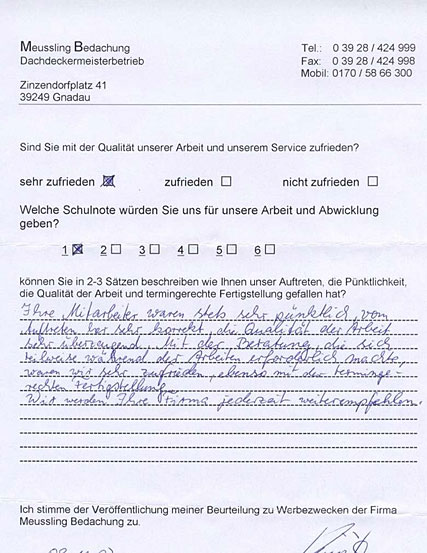 Meussling Bedachung
Dachdeckermeisterbetrieb
Zinzendorfplatz 41
39249 Gnadau
Tel.: 0 39 28 / 424 999
Fax: 0 39 28 / 424 998
Mobil: 0170 / 58 66 300
Sind Sie mit der Qualität unserer Arbeit und unserem Service zufrieden?
sehr zufrieden ☒ zufrieden ☐ nicht zufrieden ☐
Welche Schulnote würden Sie uns für unsere Arbeit und Abwicklung
geben?
1 ☒ 2 ☐ 3 ☐ 4 ☐ 5 ☐ 6 ☐
können Sie in 2-3 Sätzen beschreiben wie Ihnen unser Auftreten, die Pünktlichkeit,
die Qualität der Arbeit und termingerechte Fertigstellung gefallen hat?
Ihre Mitarbeiter waren stets sehr pünktlich, vom
Auftreten her sehr korrekt, die Qualität der Arbeit
sehr überzeugend. Mit der Beratung, die sich
teilweise während der Arbeiten erforderlich machte,
waren wir sehr zufrieden, ebenso mit der terminge-
rechten Fertigstellung.
Wir werden Ihre Firma jederzeit weiterempfehlen.
Ich stimme der Veröffentlichung meiner Beurteilung zu Werbezwecken der Firma
Meussling Bedachung zu.